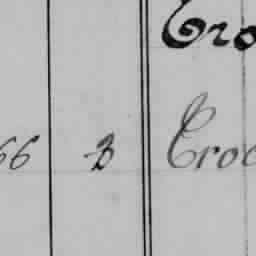 Cro
66 B Croc